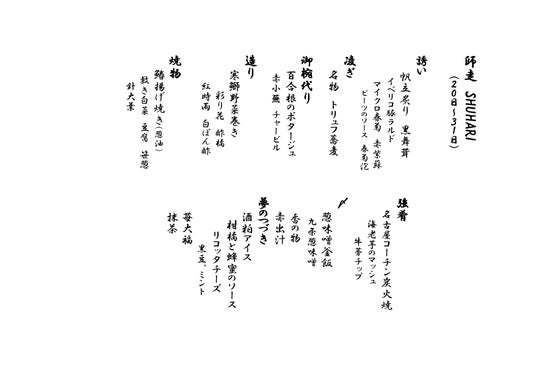 師走 SHUHARI
(20日〜31日)
誘い
帆立炙り 黒舞茸
イベリコ豚ラルド
マイクロ春菊 赤紫蘇
ビーツのソース 春菊泡
凌ぎ
名物 トリュフ蕎麦
御椀代り
百合根のポタージュ
赤小蕪 チャービル
造り
寒鰤野菜巻き
彩り花 酢橘
紅時雨 白ぽん酢
焼物
鰆揚げ焼き(葱油)
敷き白菜 豆腐 笹葱
針大葉
強肴
名古屋コーチン炭火焼
海老芋のマッシュ
牛蒡チップ
〆
葱味噌釜飯
九条葱味噌
香の物
赤出汁
夢のつづき
酒粕アイス
柑橘と蜂蜜のソース
リコッタチーズ
黒豆、ミント
苺大福
抹茶